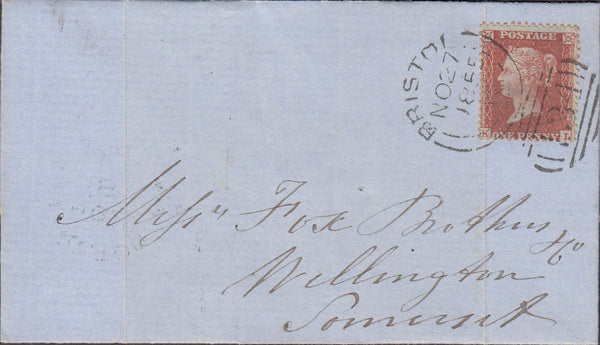 POSTAGE
ONE PENNY
L
BRISTOL
NO 27
1855
Mess^rs Fox Brothers
& Co
Wellington
Somerset